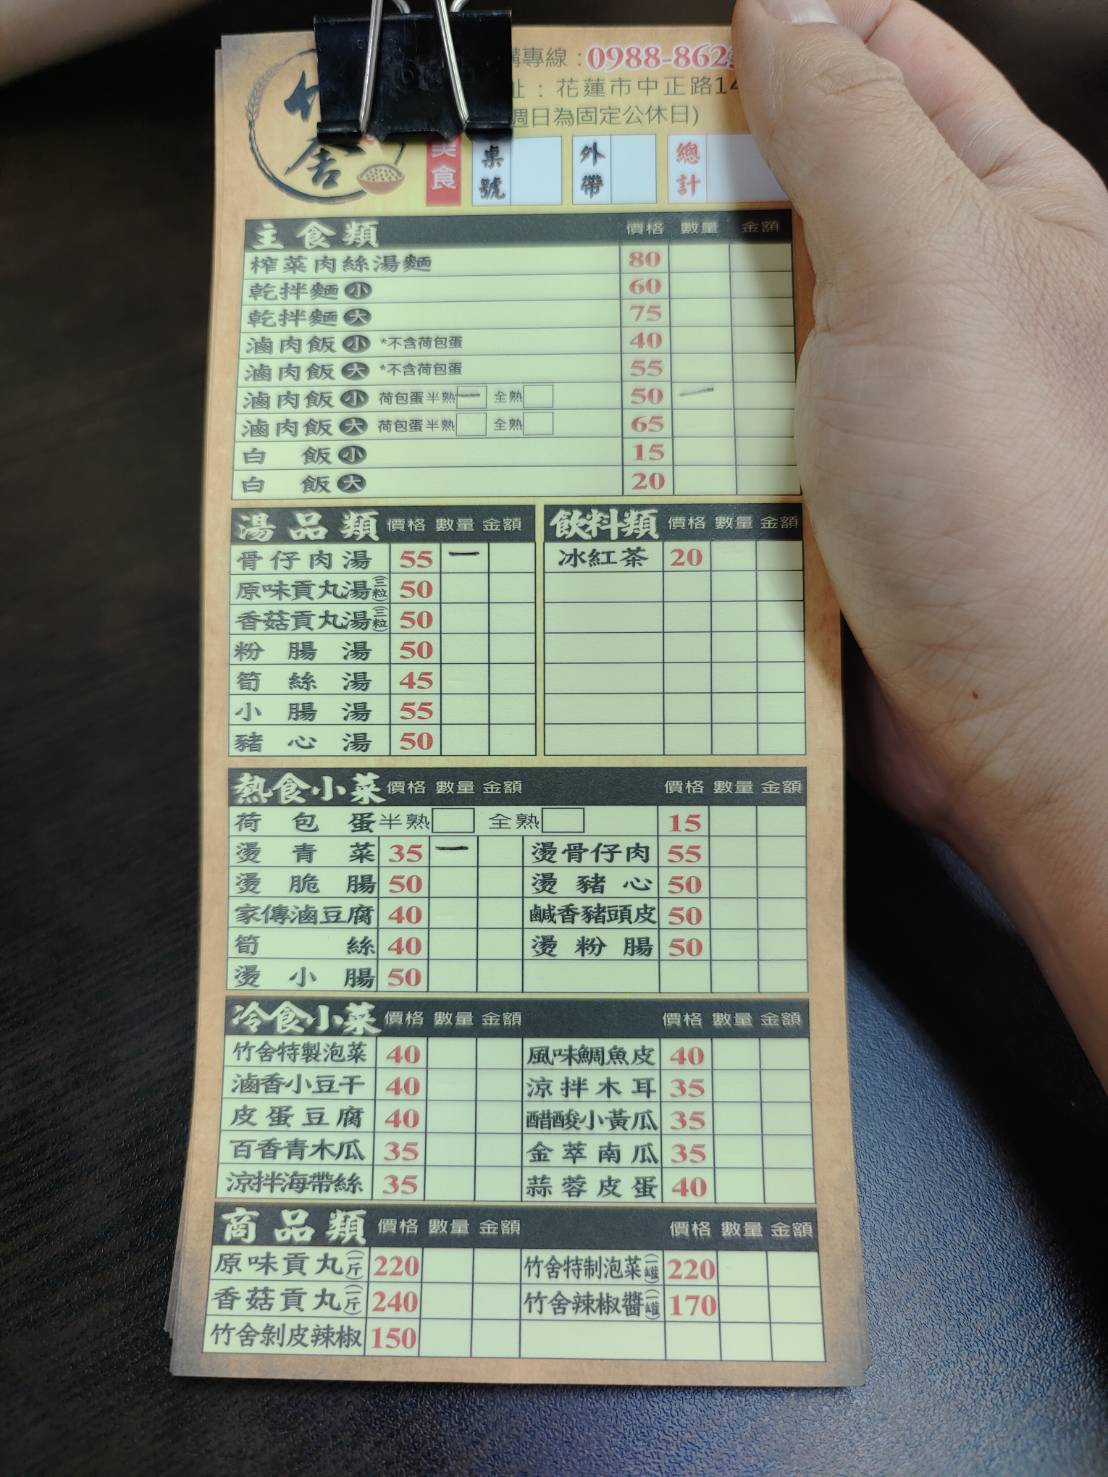 竹舍
購專線：0988-862
址：花蓮市中正路14
週日為固定公休日)
美食 桌號 外帶 總計
主食類 價格 數量 金額
榨菜肉絲湯麵 80
乾拌麵小 60
乾拌麵大 75
滷肉飯小 *不含荷包蛋 40
滷肉飯大 *不含荷包蛋 55
滷肉飯小 荷包蛋半熟 一 全熟 50 一
滷肉飯大 荷包蛋半熟 全熟 65
白飯小 15
白飯大 20
湯品類 價格 數量 金額
骨仔肉湯 55 一
原味貢丸湯(三粒) 50
香菇貢丸湯(三粒) 50
粉腸湯 50
筍絲湯 45
小腸湯 55
豬心湯 50
飲料類 價格 數量 金額
冰紅茶 20
熱食小菜 價格 數量 金額 價格 數量 金額
荷包蛋 半熟 全熟 15
燙青菜 35 一 燙骨仔肉 55
燙脆腸 50 燙豬心 50
家傳滷豆腐 40 鹹香豬頭皮 50
筍絲 40 燙粉腸 50
燙小腸 50
冷食小菜 價格 數量 金額 價格 數量 金額
竹舍特製泡菜 40 風味鯛魚皮 40
滷香小豆干 40 涼拌木耳 35
皮蛋豆腐 40 醋酸小黃瓜 35
百香青木瓜 35 金萃南瓜 35
涼拌海帶絲 35 蒜蓉皮蛋 40
商品類 價格 數量 金額 價格 數量 金額
原味貢丸(一斤) 220 竹舍特制泡菜(一罐) 220
香菇貢丸(一斤) 240 竹舍辣椒醬(一罐) 170
竹舍剝皮辣椒 150